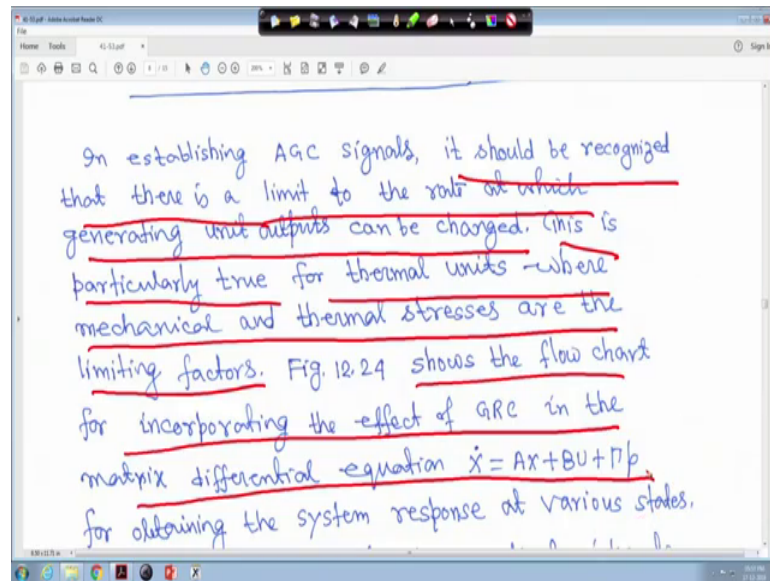 41-53.pdf - Adobe Acrobat Reader DC
File
Home Tools 41-53.pdf × Sign In
In establishing AGC signals, it should be recognized
that there is a limit to the rate at which
generating unit outputs can be changed. This is
particularly true for thermal units where
mechanical and thermal stresses are the
limiting factors. Fig. 12.24 shows the flow chart
for incorporating the effect of GRC in the
matrix differential equation ẋ = Ax + BU + Γp
for obtaining the system response at various states.
8.50 x 11.71 in